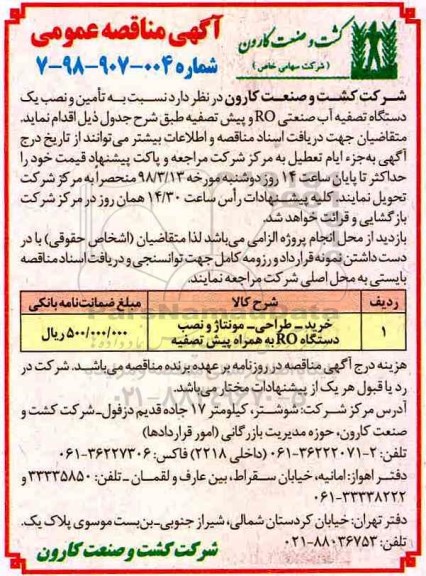 کشت و صنعت کارون
(شرکت سهامی خاص)
آگهی مناقصه عمومی
شماره ۰۰۴-۹۰۷-۹۸-۷
شرکت کشت و صنعت کارون در نظر دارد نسبت به تأمین و نصب یک
دستگاه تصفیه آب صنعتی RO و پیش تصفیه طبق شرح جدول ذیل اقدام نماید.
متقاضیان جهت دریافت اسناد مناقصه و اطلاعات بیشتر می‌توانند از تاریخ درج
آگهی به‌جزء ایام تعطیل به مرکز شرکت مراجعه و پاکت پیشنهاد قیمت خود را
حداکثر تا پایان ساعت ۱۴ روز دوشنبه مورخه ۹۸/۳/۱۳ منحصرا به مرکز شرکت
تحویل نمایند. کلیه پیشنهادات رأس ساعت ۱۴/۳۰ همان روز در مرکز شرکت
بازگشایی و قرائت خواهد شد.
بازدید از محل انجام پروژه الزامی می‌باشد لذا متقاضیان (اشخاص حقوقی) با در
دست داشتن نمونه قرارداد و رزومه کامل جهت توانسنجی و دریافت اسناد مناقصه
بایستی به محل اصلی شرکت مراجعه نمایند.
ردیف شرح کالا مبلغ ضمانت‌نامه بانکی
۱ خرید - طراحی - مونتاژ و نصب ۵۰۰/۰۰۰/۰۰۰ ریال
دستگاه RO به همراه پیش تصفیه
هزینه درج آگهی مناقصه در روزنامه بر عهده برنده مناقصه می‌باشد. شرکت در
رد یا قبول هر یک از پیشنهادات مختار می‌باشد.
آدرس مرکز شرکت: شوشتر، کیلومتر ۱۷ جاده قدیم دزفول-شرکت کشت و
صنعت کارون، حوزه مدیریت بازرگانی (امور قراردادها)
تلفن: ۲-۳۶۲۲۲۰۷۱-۰۶۱ (داخلی ۲۲۱۸) فاکس: ۳۶۲۲۷۳۰۶-۰۶۱
دفتر اهواز: امانیه، خیابان سقراط، بین عارف و لقمان - تلفن: ۳۳۳۳۵۸۵۰ و
۳۳۳۳۸۲۲۲-۰۶۱
دفتر تهران: خیابان کردستان شمالی، شیراز جنوبی-بن‌بست موسوی پلاک یک.
تلفن: ۸۸۰۳۶۷۵۳-۰۲۱
شرکت کشت و صنعت کارون